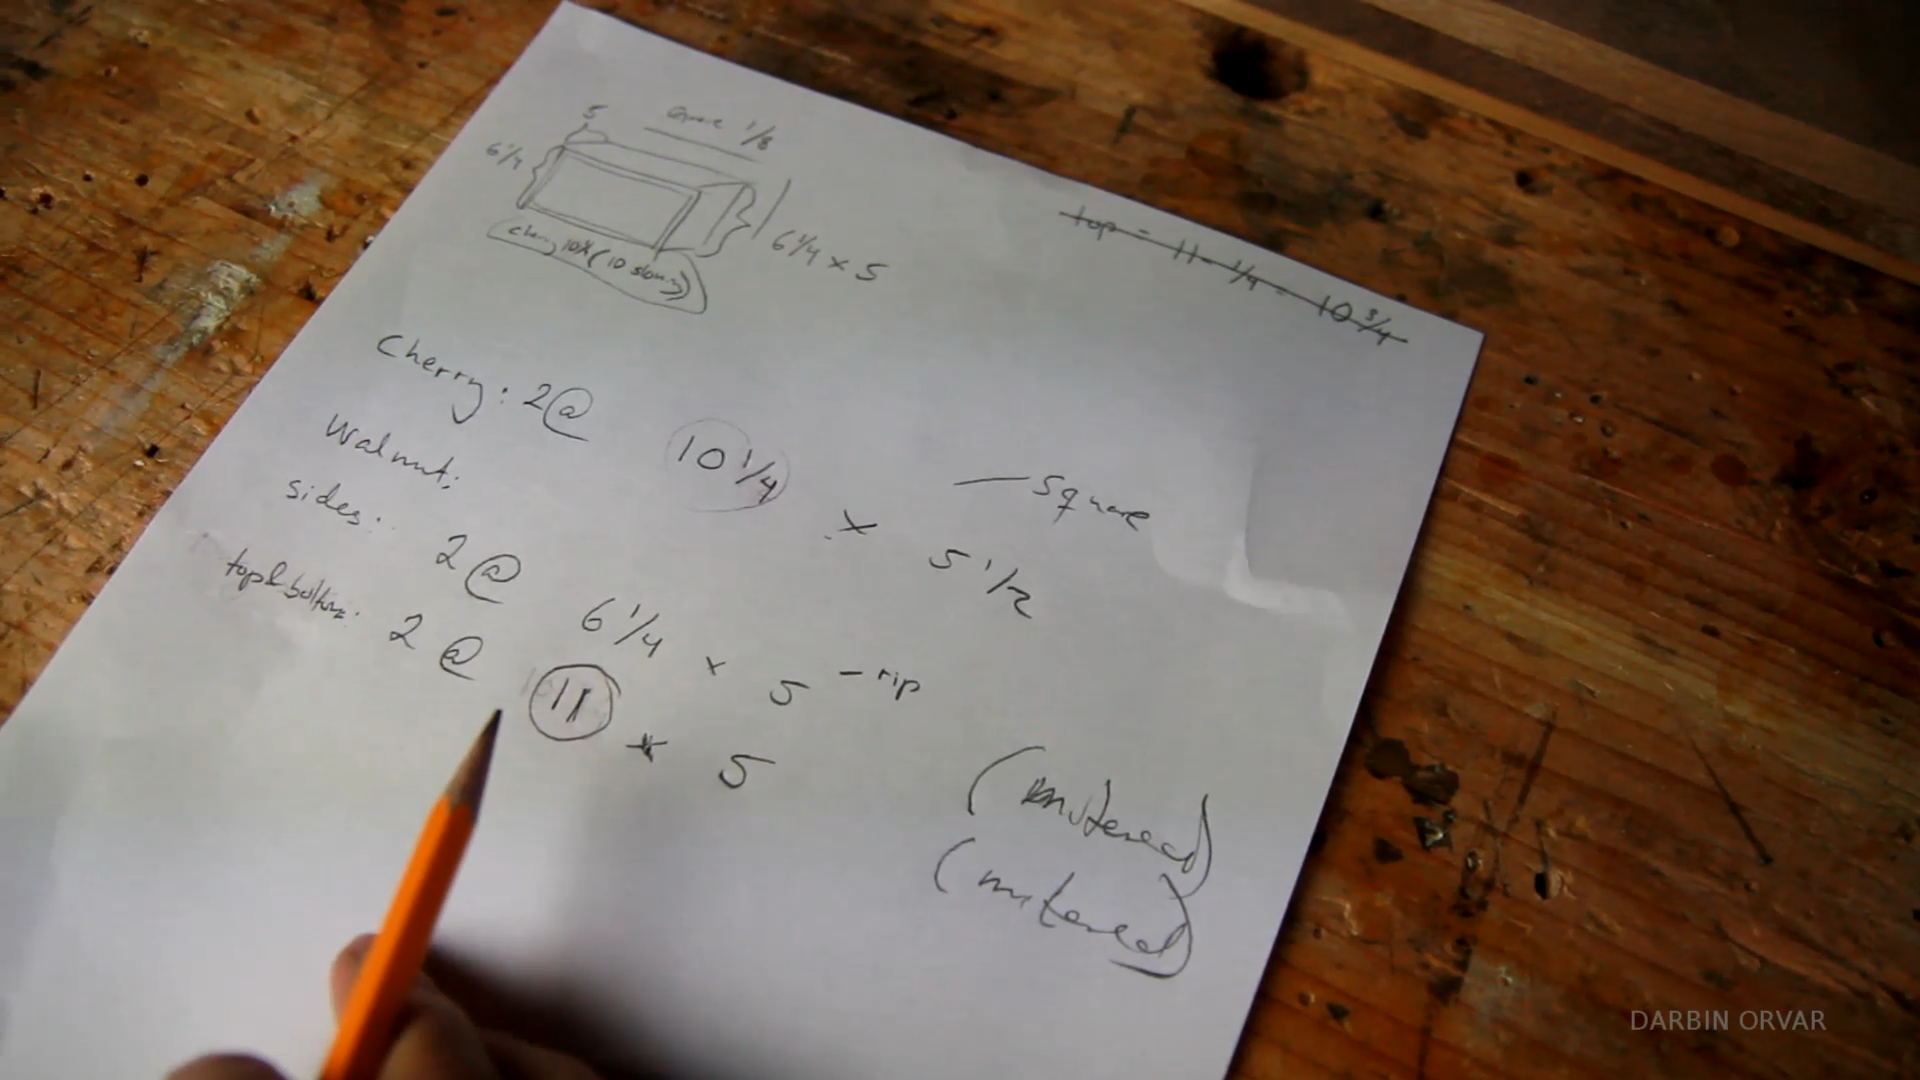 5
1/8
6 1/4
6 1/4 × 5
cherry 10
top = 11 - 1/4 = 10 3/4
Cherry: 2@ 10 1/4 × 5 1/2 — square
Walnut:
sides: 2 @ 6 1/4 × 5 - rip (mitered)
top & bottom: 2 @ 11 × 5 (mitered)
DARBIN ORVAR